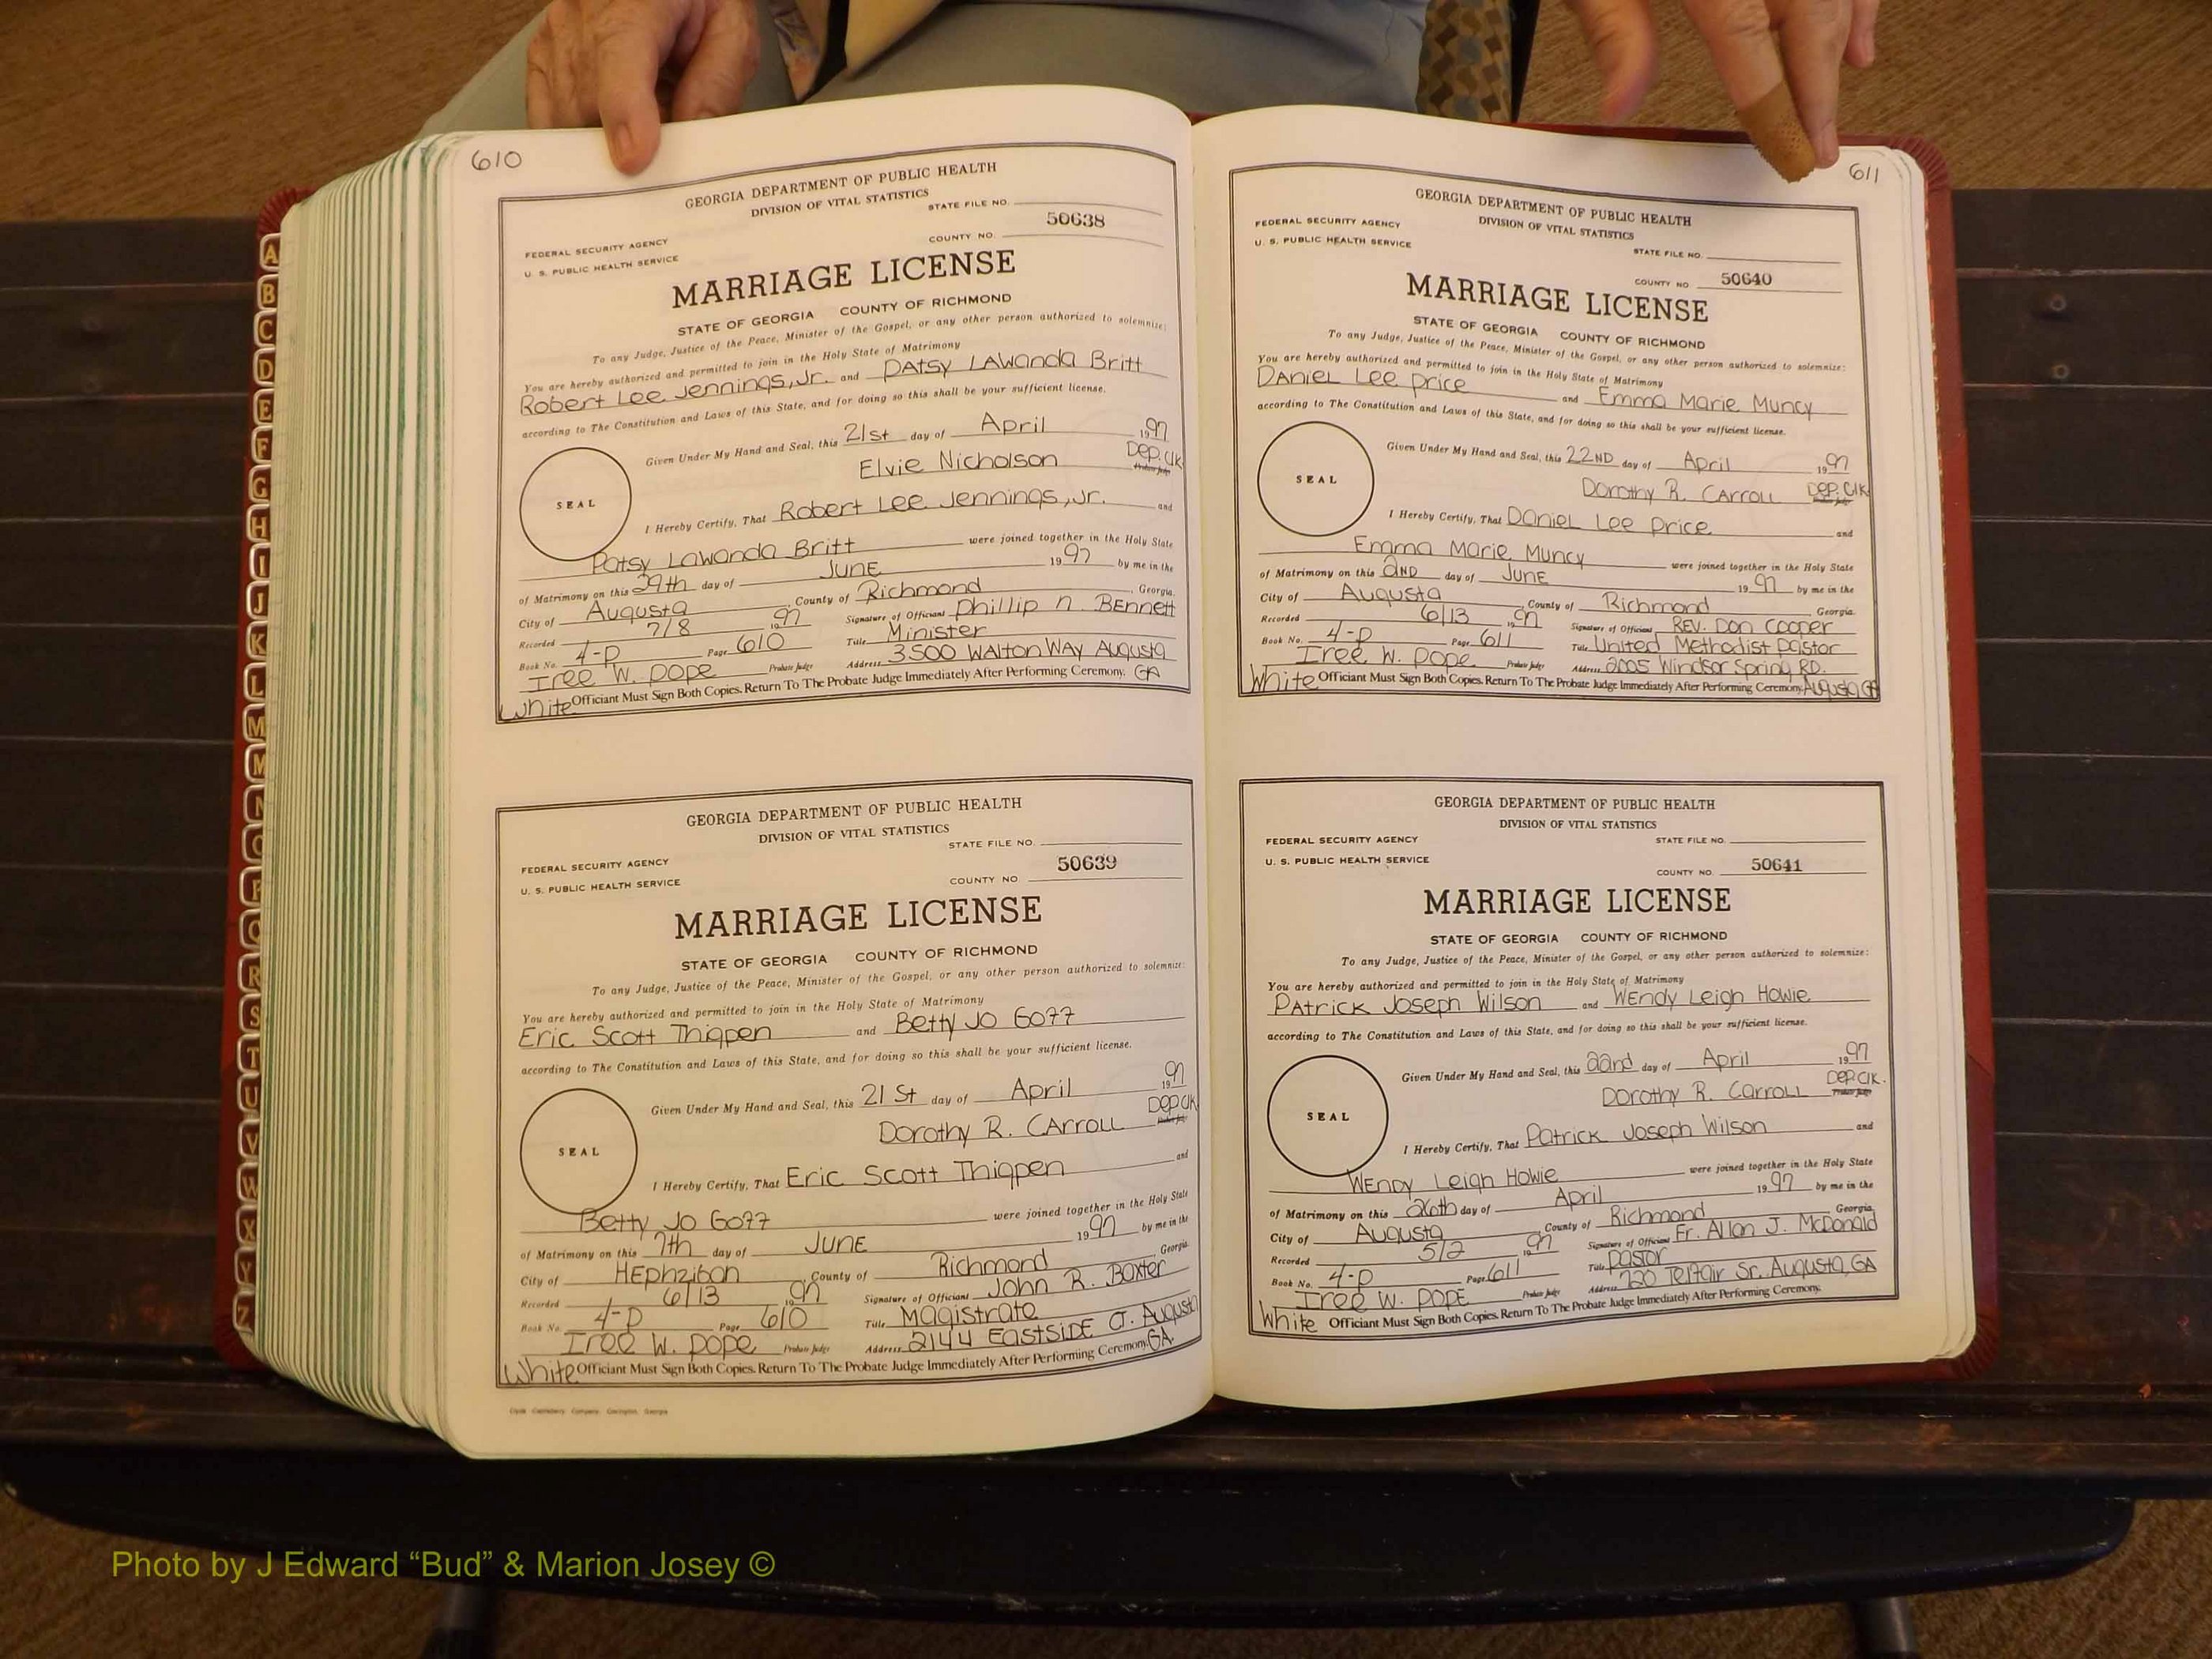 610
GEORGIA DEPARTMENT OF PUBLIC HEALTH
DIVISION OF VITAL STATISTICS
STATE FILE NO.
FEDERAL SECURITY AGENCY
U. S. PUBLIC HEALTH SERVICE
COUNTY NO. 50638
MARRIAGE LICENSE
STATE OF GEORGIA COUNTY OF RICHMOND
To any Judge, Justice of the Peace, Minister of the Gospel, or any other person authorized to solemnize:
You are hereby authorized and permitted to join in the Holy State of Matrimony
Robert Lee Jennings, Jr. and PATSY LAWANDA Britt
according to The Constitution and Laws of this State, and for doing so this shall be your sufficient license.
Given Under My Hand and Seal, this 21st day of April 1997
Elvie Nicholson Dep. Clk
SEAL
I Hereby Certify, That Robert Lee Jennings, Jr. and
Patsy LaWanda Britt were joined together in the Holy State
of Matrimony on this 29th day of JUNE 1997 by me in the
City of Augusta, County of Richmond, Georgia.
Recorded 7/8 1997 Signature of Official Phillip N. BENNETT
Book No. 4-P Page 610 Title Minister
Iree W. Pope Probate Judge Address 3500 WALTON WAY Augusta
White Officiant Must Sign Both Copies. Return To The Probate Judge Immediately After Performing Ceremony. GA
GEORGIA DEPARTMENT OF PUBLIC HEALTH
DIVISION OF VITAL STATISTICS
STATE FILE NO.
FEDERAL SECURITY AGENCY
U. S. PUBLIC HEALTH SERVICE
COUNTY NO. 50639
MARRIAGE LICENSE
STATE OF GEORGIA COUNTY OF RICHMOND
To any Judge, Justice of the Peace, Minister of the Gospel, or any other person authorized to solemnize:
You are hereby authorized and permitted to join in the Holy State of Matrimony
Eric Scott Thigpen and Betty Jo Goff
according to The Constitution and Laws of this State, and for doing so this shall be your sufficient license.
Given Under My Hand and Seal, this 21st day of April 1997
Dorothy R. CARROLL Dep Clk
SEAL
I Hereby Certify, That Eric Scott Thigpen and
Betty Jo Goff were joined together in the Holy State
of Matrimony on this 7th day of JUNE 1997 by me in the
City of HEphzibah, County of Richmond, Georgia.
Recorded 6/13 1997 Signature of Official John R. Baxter
Book No. 4-P Page 610 Title Magistrate
Iree W. Pope Probate Judge Address 2144 EASTSIDE Ct. Augusta
White Officiant Must Sign Both Copies. Return To The Probate Judge Immediately After Performing Ceremony. GA.
611
GEORGIA DEPARTMENT OF PUBLIC HEALTH
DIVISION OF VITAL STATISTICS
FEDERAL SECURITY AGENCY
U. S. PUBLIC HEALTH SERVICE
STATE FILE NO.
COUNTY NO 50640
MARRIAGE LICENSE
STATE OF GEORGIA COUNTY OF RICHMOND
To any Judge, Justice of the Peace, Minister of the Gospel, or any other person authorized to solemnize:
You are hereby authorized and permitted to join in the Holy State of Matrimony
DANIEL LEE Price and Emma Marie Muncy
according to The Constitution and Laws of this State, and for doing so this shall be your sufficient license.
Given Under My Hand and Seal, this 22ND day of April 1997
Dorothy R. CARROLL DEP. Clk
SEAL
I Hereby Certify, That DANIEL LEE Price and
Emma Marie Muncy were joined together in the Holy State
of Matrimony on this 2ND day of JUNE 1997 by me in the
City of Augusta, County of Richmond Georgia.
Recorded 6/13 1997 Signature of Official REV. Don Cooper
Book No. 4-P Page 611 Title United Methodist Pastor
Iree W. Pope Probate Judge Address 2005 Windsor Spring RD.
White Officiant Must Sign Both Copies. Return To The Probate Judge Immediately After Performing Ceremony. Augusta GA
GEORGIA DEPARTMENT OF PUBLIC HEALTH
DIVISION OF VITAL STATISTICS
FEDERAL SECURITY AGENCY
STATE FILE NO.
U. S. PUBLIC HEALTH SERVICE
COUNTY NO. 50641
MARRIAGE LICENSE
STATE OF GEORGIA COUNTY OF RICHMOND
To any Judge, Justice of the Peace, Minister of the Gospel, or any other person authorized to solemnize:
You are hereby authorized and permitted to join in the Holy State of Matrimony
PATRICK Joseph Wilson and WENDY Leigh Howie
according to The Constitution and Laws of this State, and for doing so this shall be your sufficient license.
Given Under My Hand and Seal, this 22nd day of April 1997
Dorothy R. Carroll Dep Clk.
SEAL
I Hereby Certify, That Patrick Joseph Wilson and
WENDY Leigh Howie were joined together in the Holy State
of Matrimony on this 26th day of April 1997 by me in the
City of Augusta County of Richmond Georgia
Recorded 5/2 1997 Signature of Official Fr. Allan J. McDonald
Book No. 4-P Page 611 Title Pastor
Iree W. POPE Probate Judge Address 720 Telfair St. Augusta, GA
White Officiant Must Sign Both Copies. Return To The Probate Judge Immediately After Performing Ceremony.
A
B
C
D
E
F
G
H
I
J
K
L
M
M
N
O
P
Q
R
S
T
U
V
W
X
Y
Z
Photo by J Edward “Bud” & Marion Josey ©